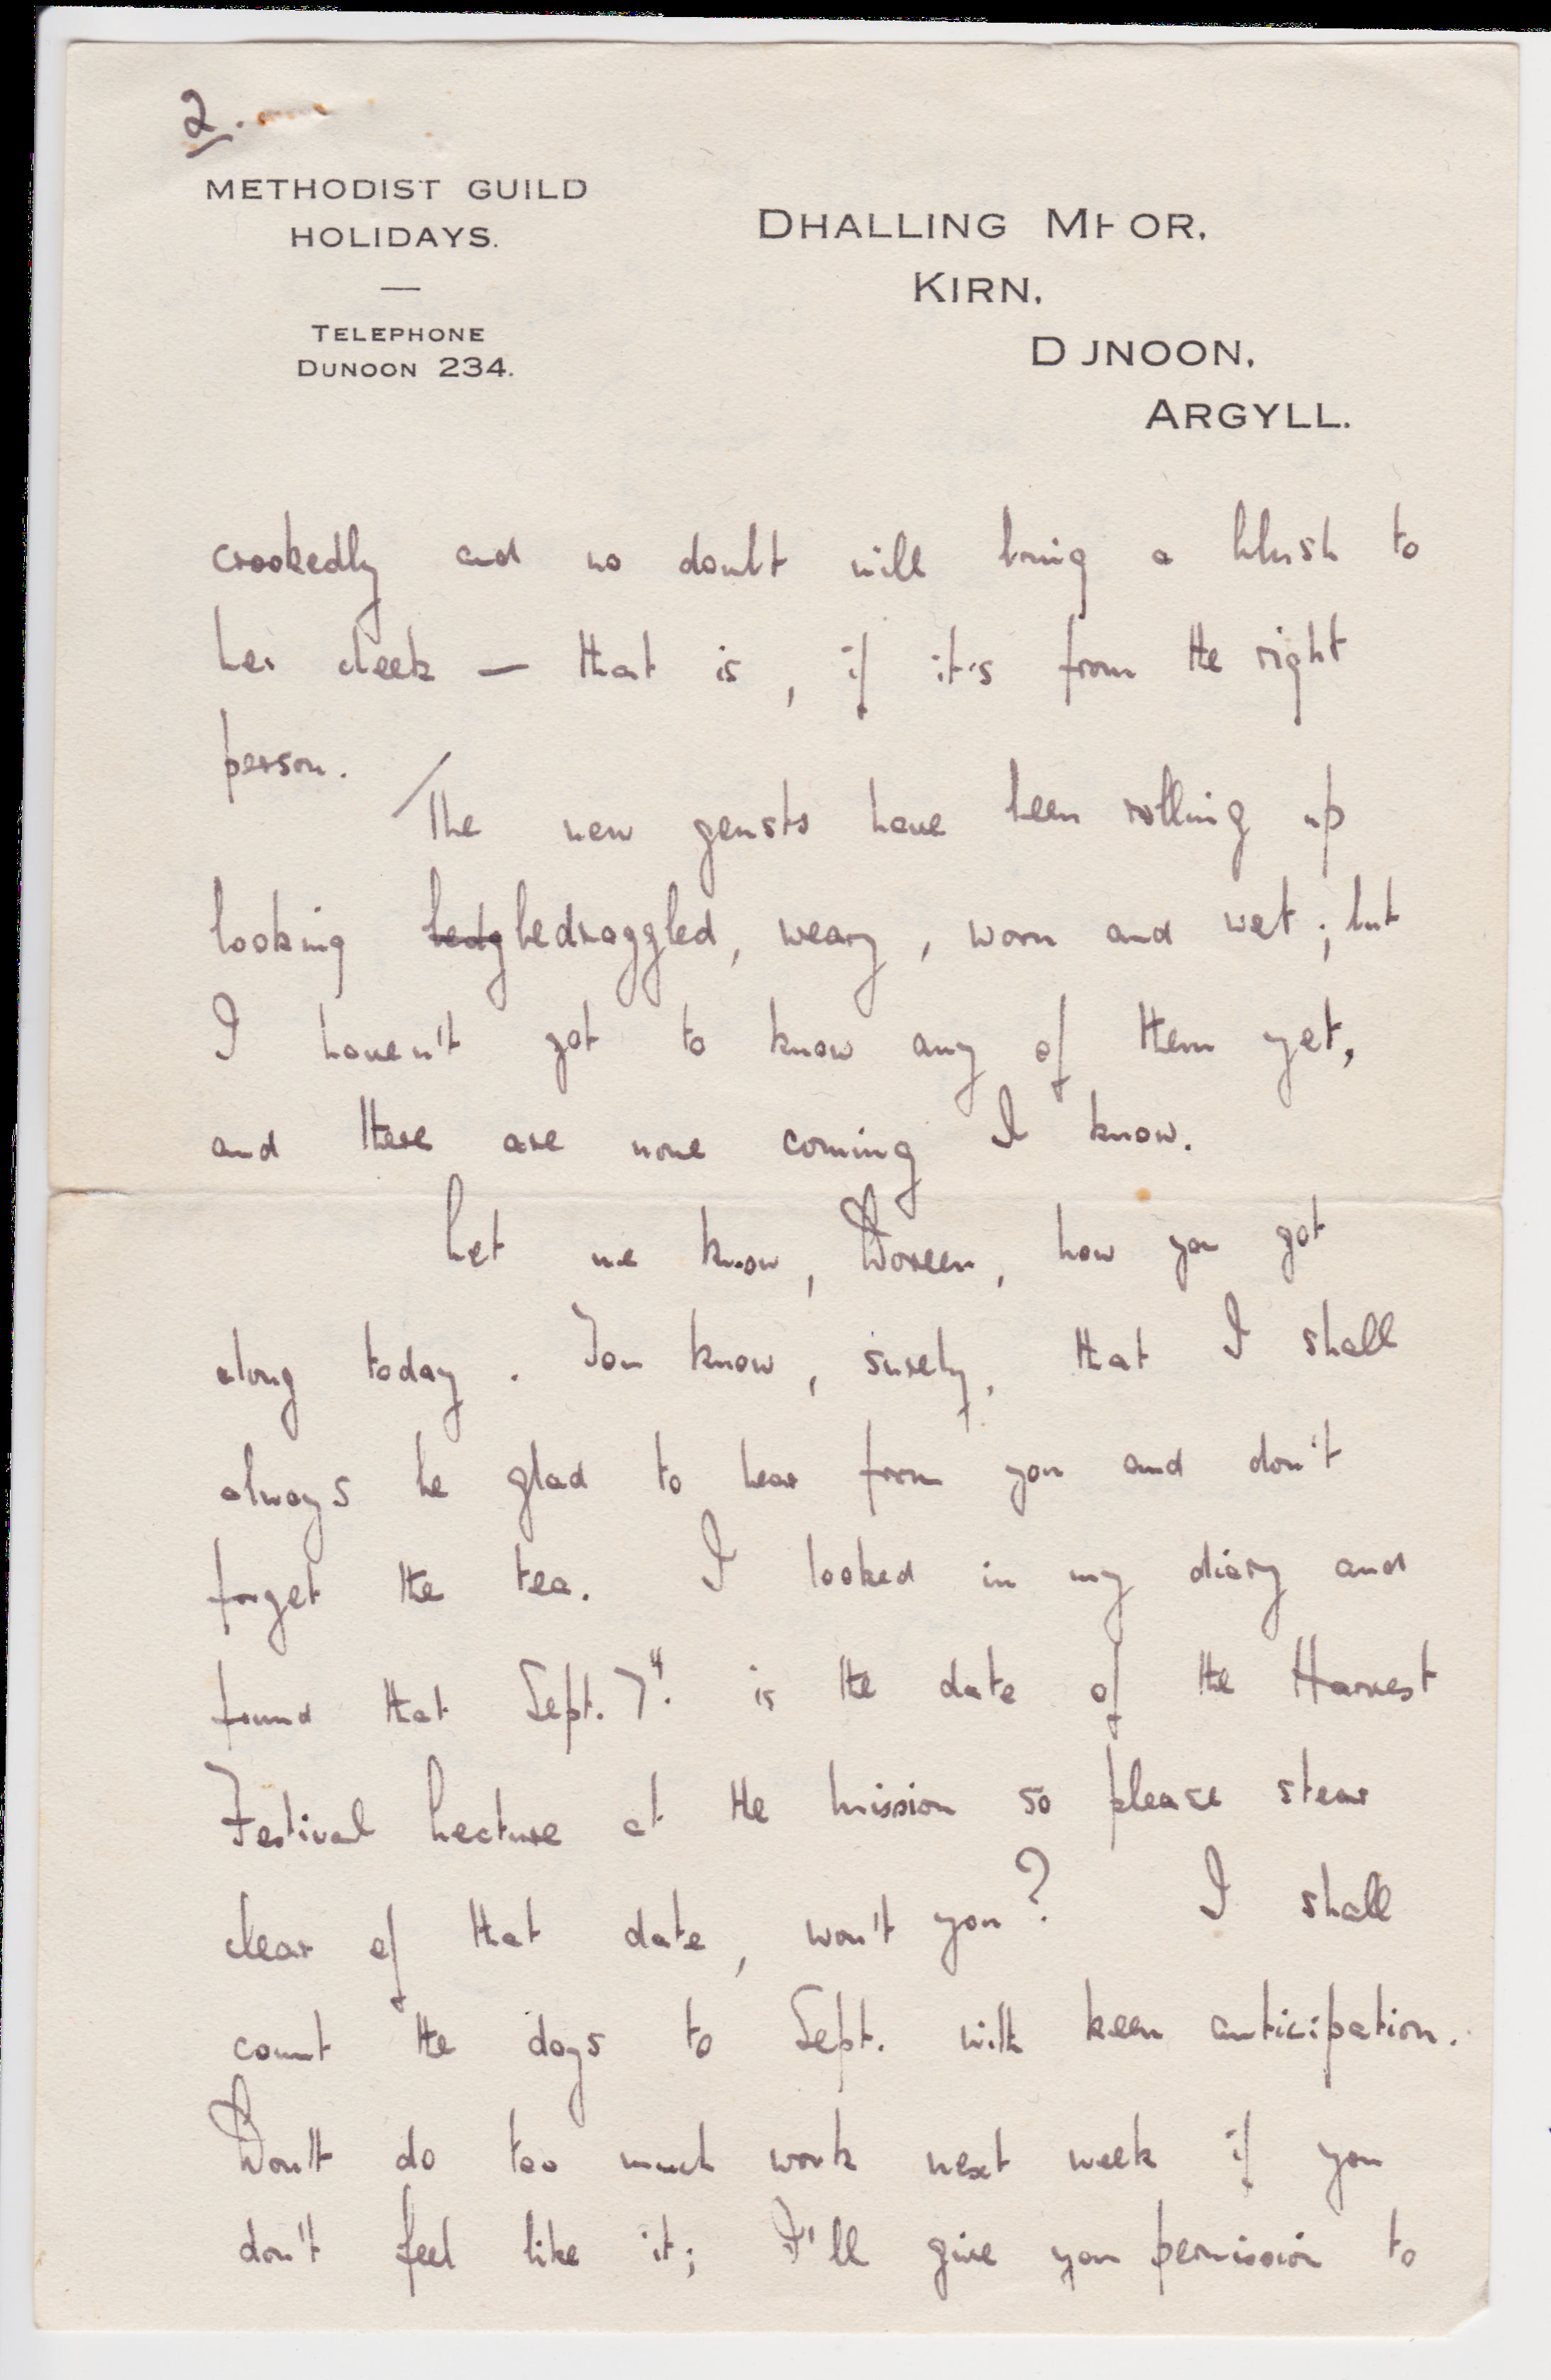 2.
METHODIST GUILD
HOLIDAYS.
—
TELEPHONE
DUNOON 234.
DHALLING MHOR,
KIRN,
DUNOON,
ARGYLL.
crookedly and no doubt will bring a blush to
her cheek — that is, if it's from the right
person.
The new geusts have been rolling up
looking bedg bedraggled, weary, worn and wet; but
I haven't got to know any of them yet,
and there are none coming I know.
Let me know, Doreen, how you got
along today. You know, surely, that I shall
always be glad to hear from you and don't
forget the tea. I looked in my diary and
found that Sept. 7th. is the date of the Harvest
Festival Lecture at the mission so please stear
clear of that date, won't you? I shall
count the days to Sept. with keen anticipation.
Don't do too much work next week if you
don't feel like it; I'll give you permission to